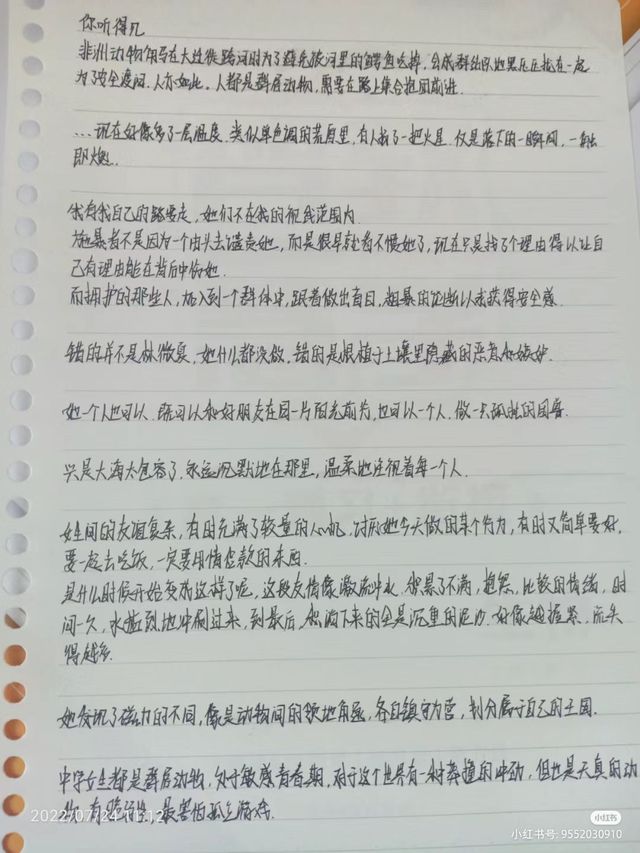 你听得见
非洲动物角马在大迁徙跨河时为了避免被河里的鳄鱼吃掉,会成群结队地黑压压挤在一起
为了安全渡河.人亦如此。人都是群居动物,需要在路上集合抱团前进.
...现在好像多了一层温度.类似单色调的荒原里,有人扔了一把火星.仅是落下的一瞬间,一触
即燃..
我有我自己的路要走,她们不在我的视线范围内
施暴者不是因为一个由头去谴责她,而是很早就看不惯她了,现在只是找了个理由得以让自
己有理由能在背后中伤她.
而拥护的那些人,加入到一个群体中,跟着做出盲目,粗暴的论断以求获得安全感.
错的并不是林微夏,她什么都没做.错的是根植于土壤里隐藏的恶意和嫉妒.
她一个人也可以.既可以和好朋友在同一片阳光前行,也可以一个人.做一只孤独的困兽.
只是大海太包容了.永远沉默地在那里,温柔地注视着每一个人.
女生间的友谊复杂,有时充满了较量的心机,讨厌她今天做的某个行为,有时又简单要好,
要一起去吃饭,一定要用情侣款的东西.
是什么时候开始变成这样了呢,这段友情像激流冲水.积累了不满,抱怨,比较的情绪,时
间一久,水猛烈地冲刷过来,到最后,积淌下来的全是沉重的泥沙.好像越握紧.流失
得越多.
她发现了磁场的不同,像是动物间的领地角逐,各自镇守为营,划分属于自己的王国.
中学女生都是群居动物,处于敏感青春期,对于这个世界有一种莽撞的冲动,但也是天真的动
物,有跟从性,最害怕孤立游戏.
2022/07/24 11:12
小红书
小红书号:9552030910